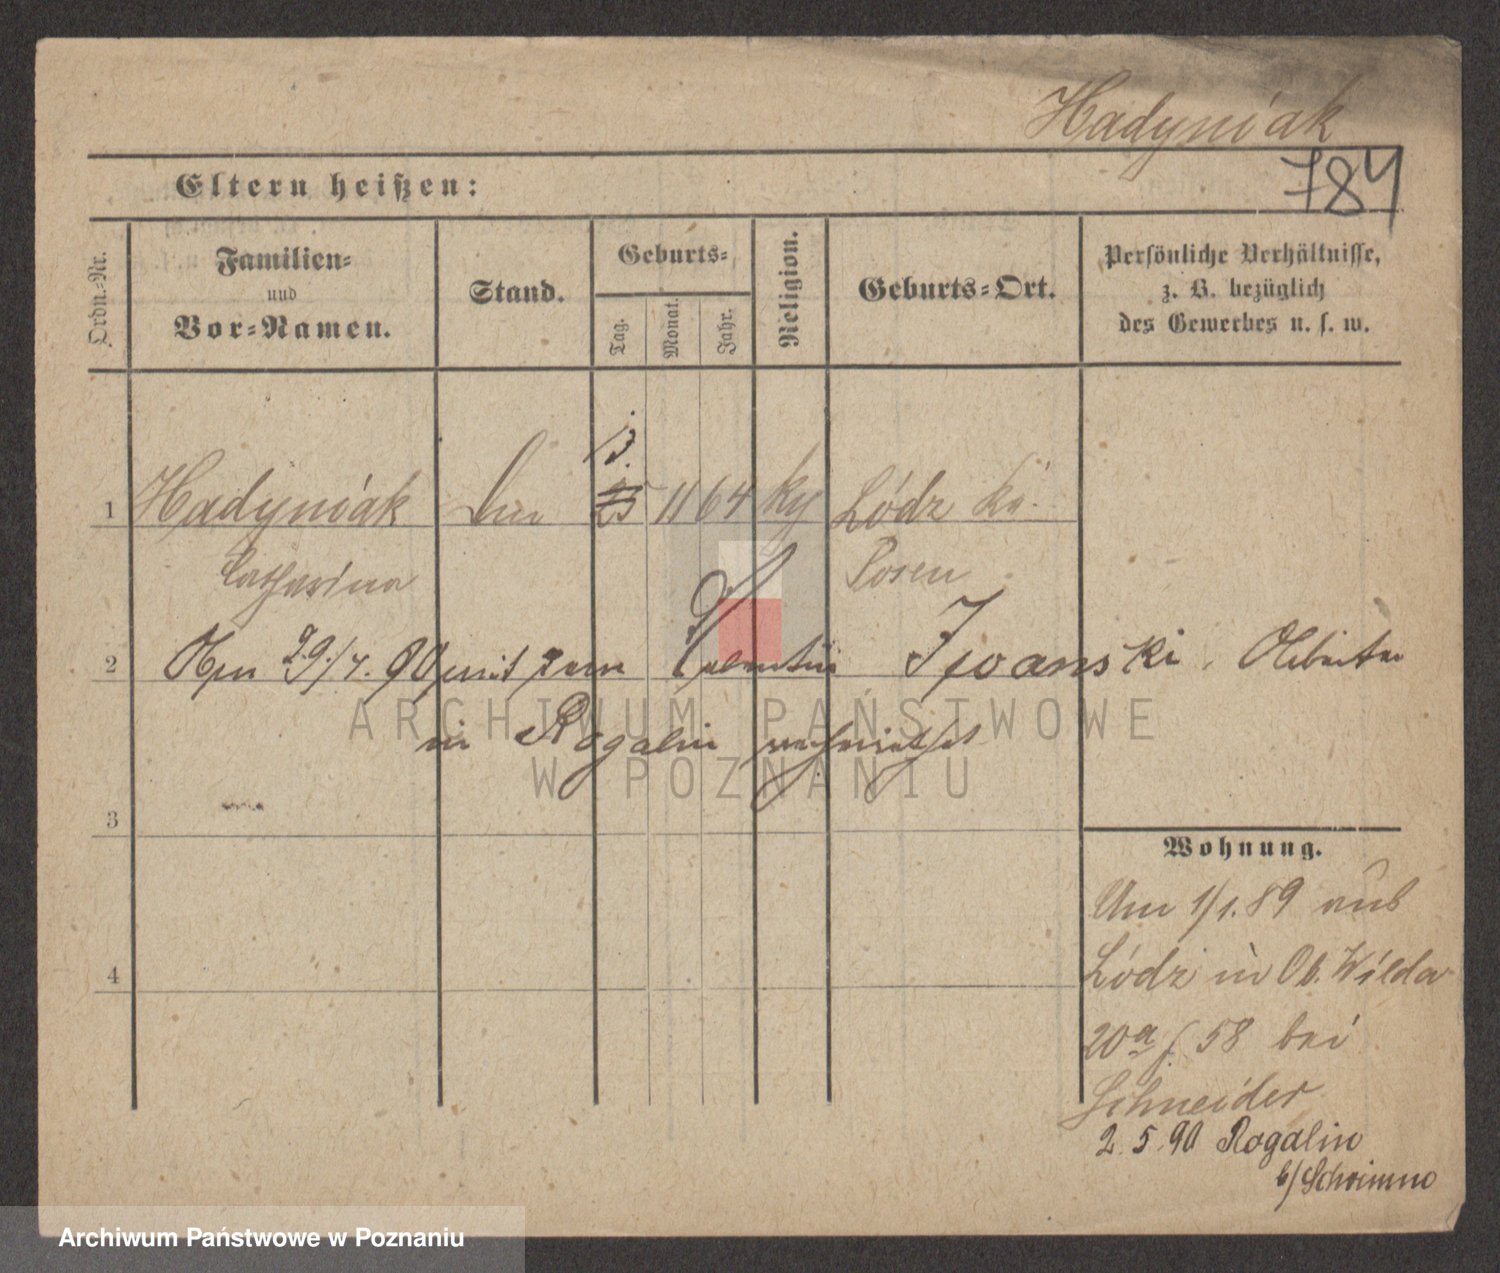 Hadyniak
784
Eltern heißen:
Ordn.-Nr.
Familien-
und
Vor-Namen.
Stand.
Geburts-
Tag.
Monat.
Jahr.
Religion.
Geburts-Ort.
Persönliche Verhältnisse,
z. B. bezüglich
des Gewerbes u. s. w.
13.
1 Hadyniak 25 11 64 kg Lódz Kr.
Catharina Posen
2 Am 29/4. 90 mit dem Valentin Iwanski, Arbeiter
in Rogalin verheirathet
ARCHIWUM PAŃSTWOWE
W POZNANIU
3
Wohnung.
Am 1/1. 89 aus
4
Lódz in Ob. Wilda
20a / 58 bei
Schneider
2. 5. 90 Rogalin
b/ Schrimm
Archiwum Państwowe w Poznaniu